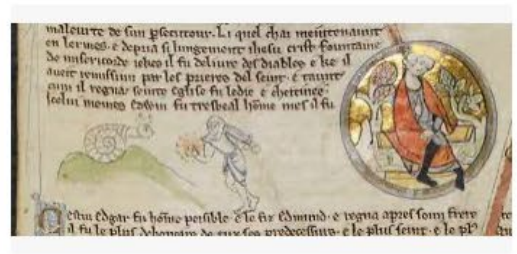 maleurte de sun ꝑsecutour. Li quel chai meintenaunt
en lermes. e depria si lungement ihesu crist fountaine
de misericorde iekes il fu deliure des diables e ke il
aueit remissiun par les prieres del seint. e taunt
cum il regna seinte eglise fu ledie e cheitiue.
icelui meimes edwin fu tresbeal home mes il fu
estui edgar fu home peisible e le fiz Edmund. e regna apres soun frere
il fu le plus de tuz ses predecessurs. e le plus seint. e le pl